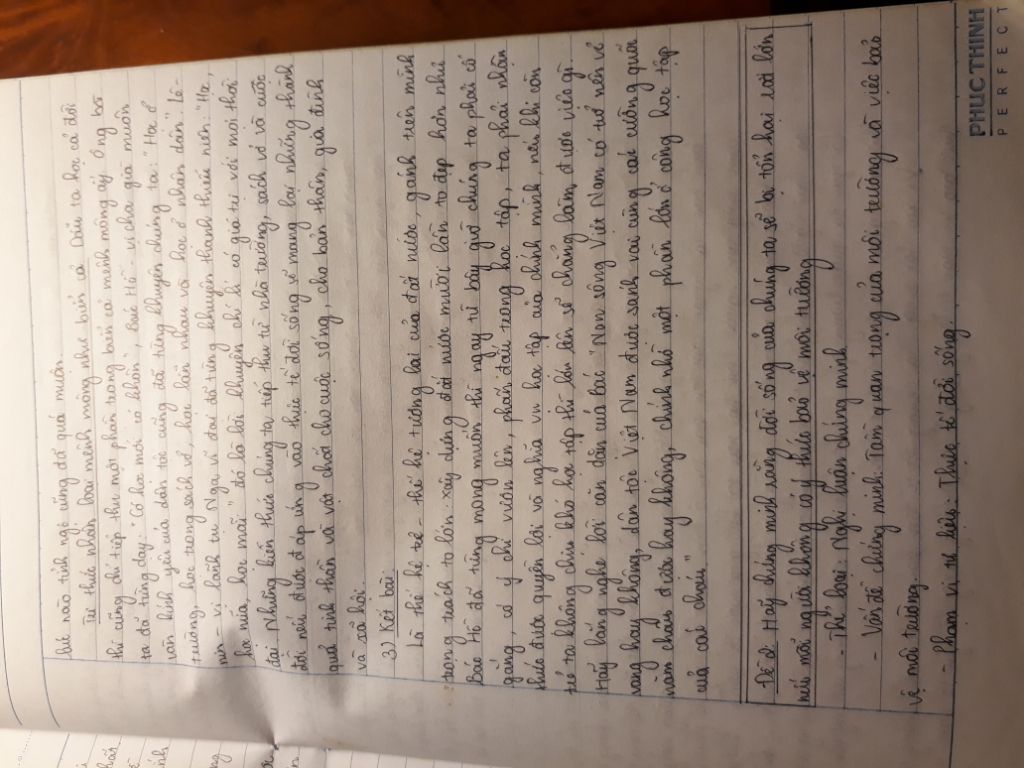 lúc nào tỉnh ngộ cũng đã quá muộn.
Tri thức nhân loại mênh mông như biển cả. Dẫu ta học cả đời
thì cũng chỉ tiếp thu một phần trong biển cả mênh mông ấy. Ông bà
ta đã từng dạy: "Có học mới có khôn", Bác Hồ - vị cha già muôn
vàn kính yêu của dân tộc cũng đã từng khuyên chúng ta: "Học ở
trường, học trong sách vở, học lẫn nhau và học ở nhân dân". Lê-
nin - vị lãnh tụ Nga vĩ đại đã từng khuyên thanh thiếu niên: "Học,
học nữa, học mãi". Đó là lời khuyên chí lí có giá trị với mọi thời
đại. Những kiến thức chúng ta tiếp thu từ nhà trường, sách vở và cuộc
đời nếu được đáp ứng vào thực tế đời sống sẽ mang lại những thành
quả tinh thần và vật chất cho cuộc sống, cho bản thân, gia đình
và xã hội.
3) Kết bài
Là thế hệ trẻ - thế hệ tương lai của đất nước, gánh trên mình
trọng trách to lớn: xây dựng đất nước mười lần to đẹp hơn như
Bác Hồ đã từng mong muốn thì ngay từ bây giờ chúng ta phải cố
gắng, có ý chí vươn lên, phấn đấu trong học tập, ta phải nhận
thức được quyền lợi và nghĩa vụ học tập của chính mình, nếu khi còn
trẻ ta không chịu khó học tập thì lớn lên sẽ chẳng làm được việc gì...
Hãy lắng nghe lời căn dặn của Bác "Non sông Việt Nam có trở nên vẻ
vang hay không, dân tộc Việt Nam được sánh vai cùng các cường quốc
năm châu được hay không, chính nhờ một phần lớn ở công học tập
của các cháu"
Đề 2: Hãy chứng minh rằng đời sống của chúng ta sẽ bị tổn hại rất lớn
nếu mỗi người không có ý thức bảo vệ môi trường
- Thể loại: Nghị luận chứng minh
- Vấn đề chứng minh: Tầm quan trọng của môi trường và việc bảo
vệ môi trường.
- Phạm vi tư liệu: Thực tế đời sống
PHUC THINH
PERFECT